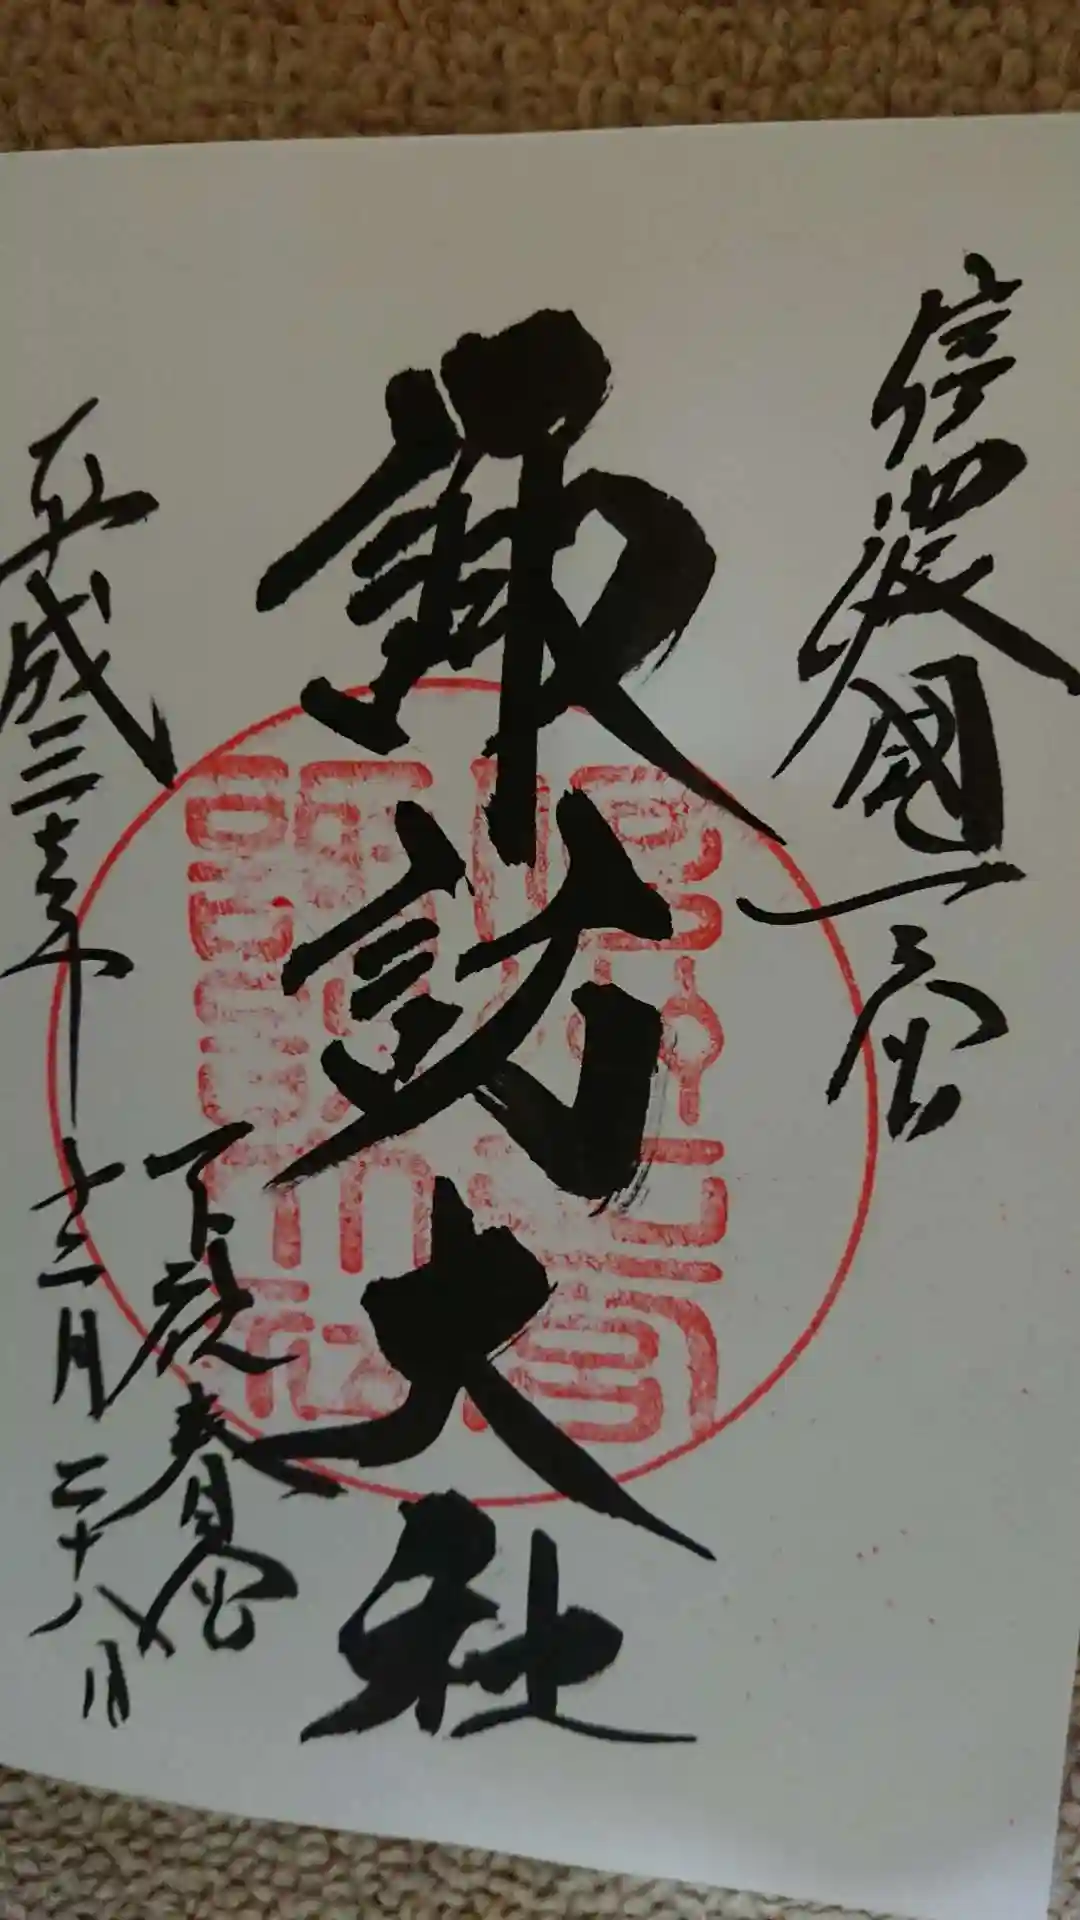 信濃國一之宮
諏訪大社
下社春宮
平成三十年十二月二十八日